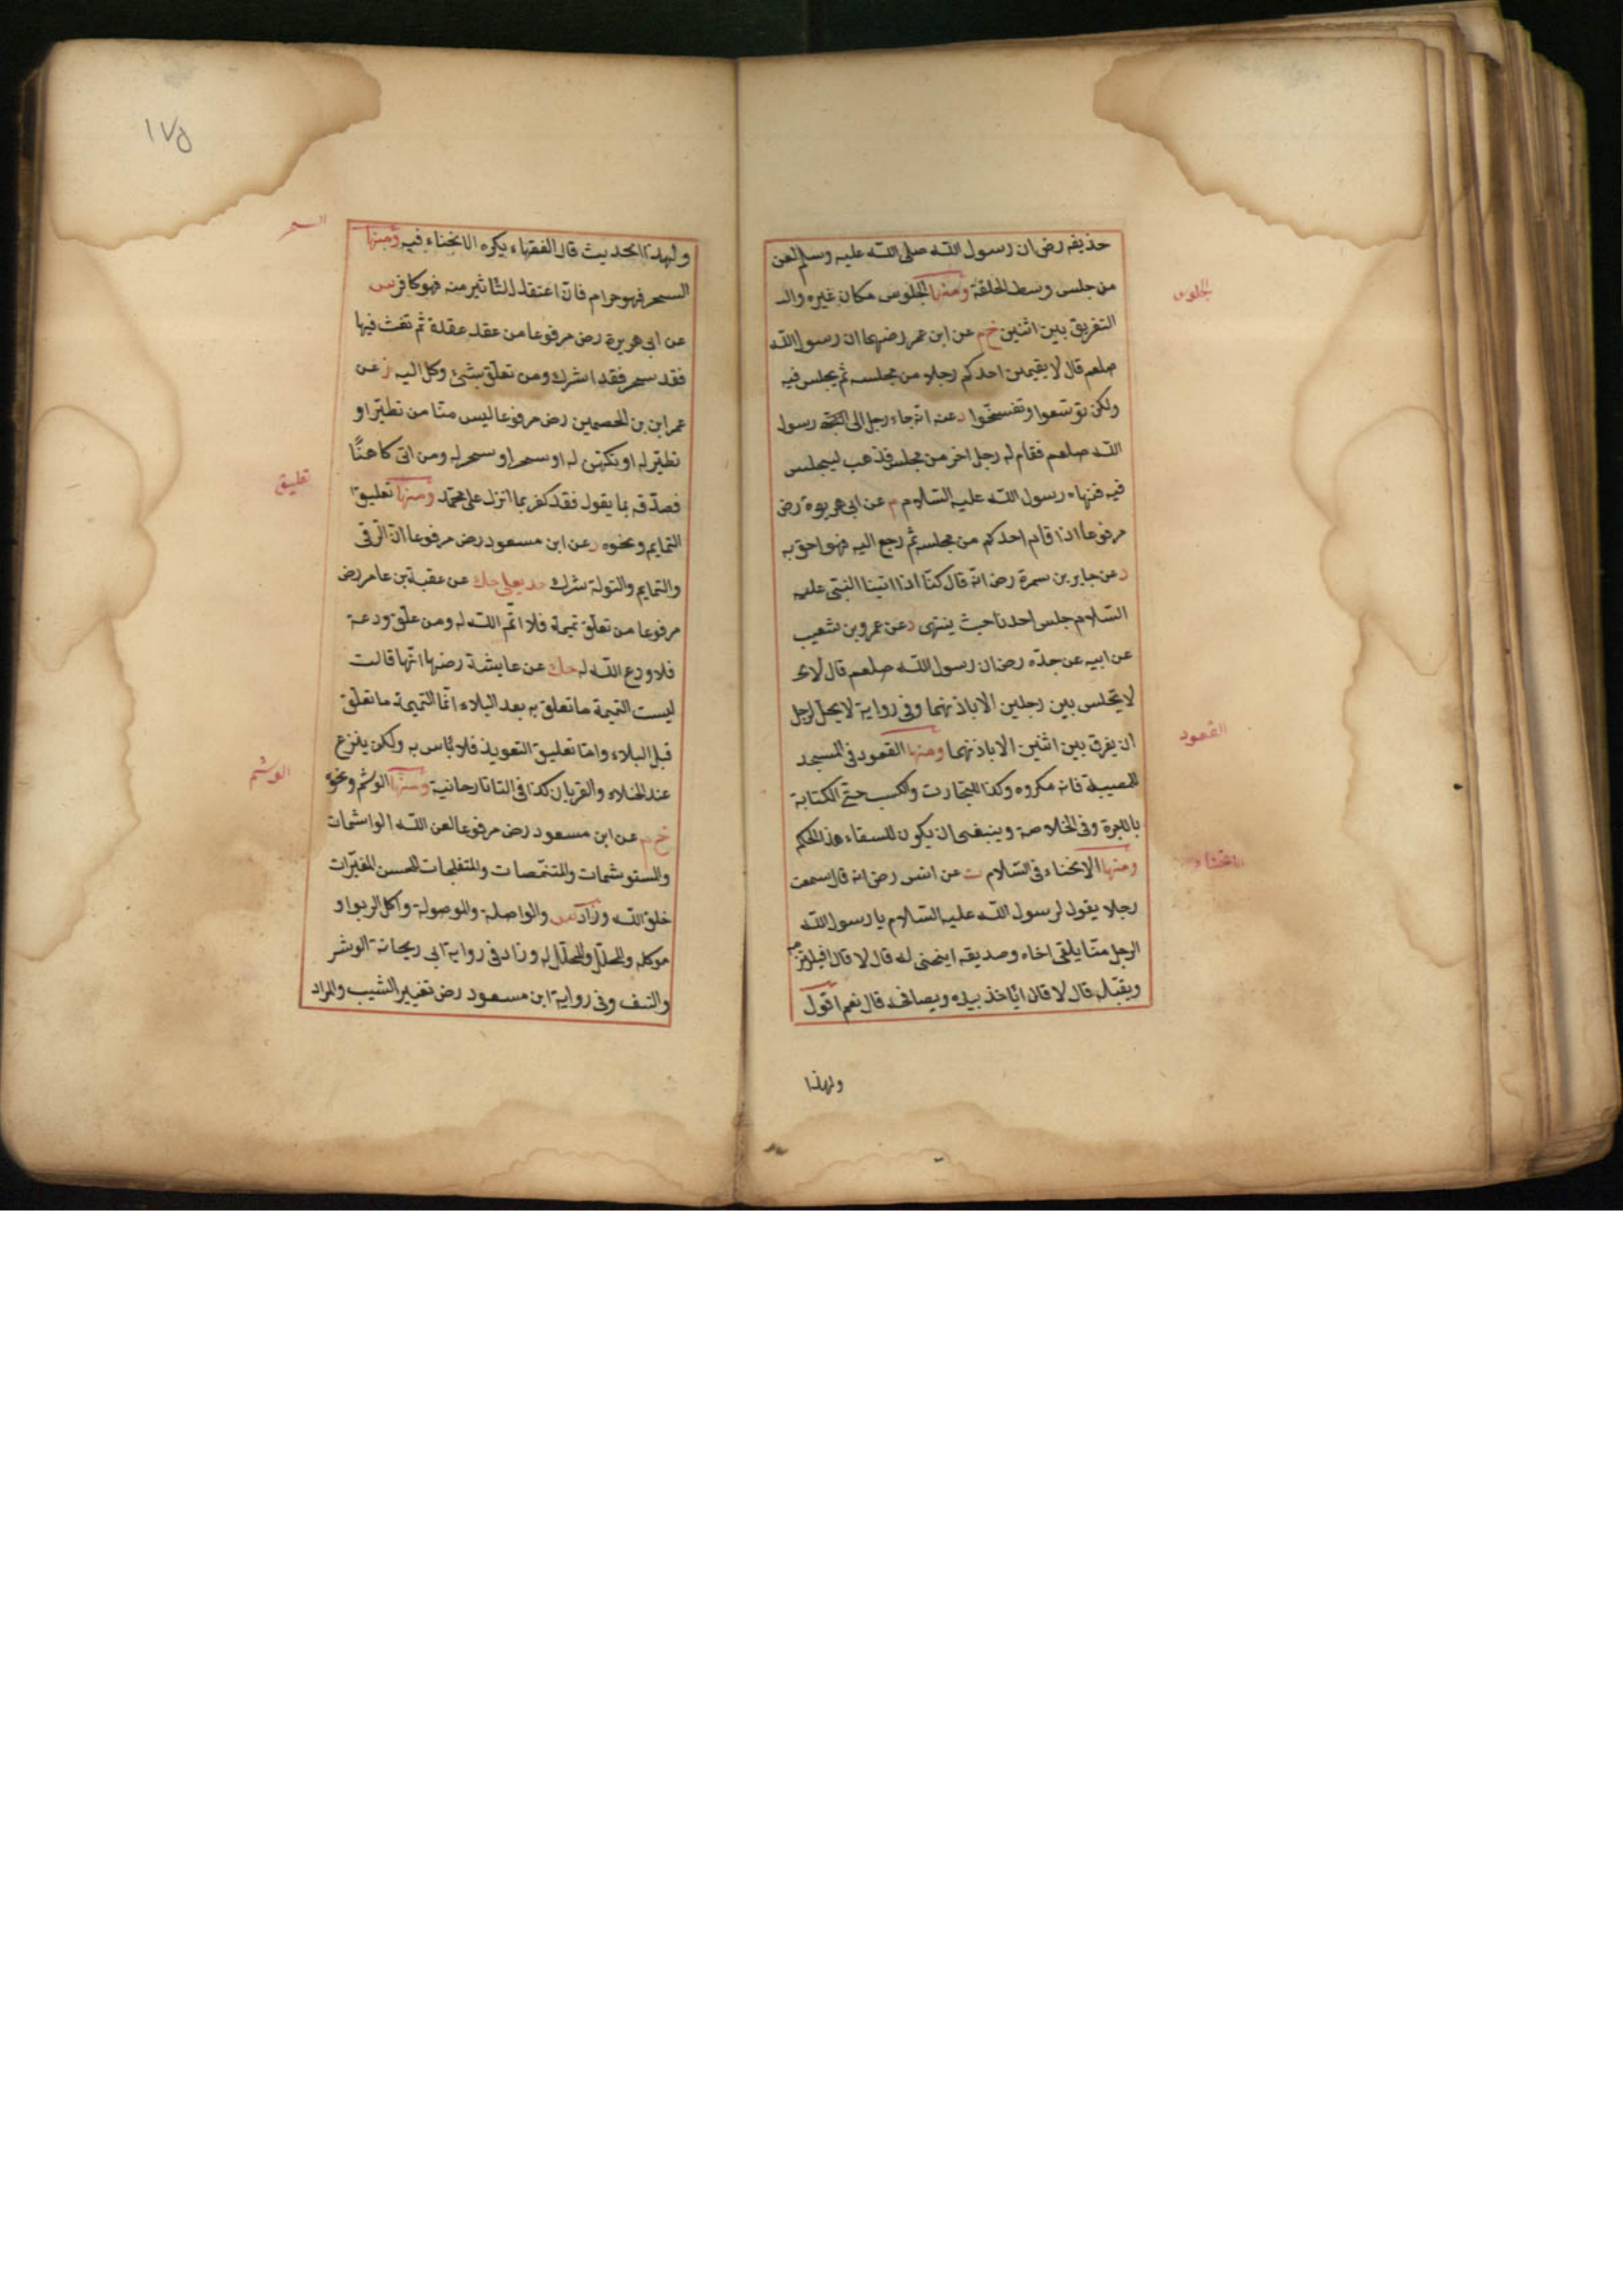 حذيفه رض ان رسول الله صلى الله عليه وسلم لعن
من جلس وسط الحلقة ومنها الجلوس مكان غيره وال
الجلوس
التفريق بين اثنين خ م عن ابن عمر رضهما ان رسول الله
صلعم قال لا يقيمن احدكم رجلا من مجلسه ثم يجلس فيه
ولكن توسعوا وتفسحوا د عنه انه جاء رجل الى رسول
الله صلعم فقام له رجل اخر من مجلس فذهب ليجلس
فيه فنهاه رسول الله عليه السلام م عن ابى هريرة رض
مرفوعا اذا قام احدكم من مجلسه ثم رجع اليه فهو احق به
د عن جابر بن سمرة رض انه قال كنا اذا اتينا النبى عليه
السلام جلس احدنا حيث ينتهى د عن عمرو بن شعيب
عن ابيه عن جده رض ان رسول الله صلعم قال
لا يجلس بين رجلين الا باذنهما وفى رواية لا يحل لرجل
ان يفرق بين اثنين الا باذنهما ومنها القعود فى المسجد
القعود
للمصيبة فانه مكروه وكذا للتجارت والكسب حتى الكتابة
بالاجرة وفى الخلاصة وينبغى ان يكون للسقاء هذا الحكم
ومنها الانحناء فى السلام ت عن انس رض انه قال سمعت
انحناء
رجلا يقول لرسول الله عليه السلام يا رسول الله
الرجل منا يلقى اخاه وصديقه اينحنى له قال لا قال افيلتزمه
ويقبله قال لا قال اياخذ بيده ويصافحه قال نعم اقول
ولهذا
١٧٥
ولهذا الحديث قال الفقهاء يكره الانحناء فيه ومنها
السحر
السحر فهو حرام فان اعتقد التاثير منه فهو كافر س
عن ابى هريرة رض مرفوعا من عقد عقدة ثم نفث فيها
فقد سحر فقد اشرك ومن تعلق بشئ وكل اليه ز عن
عمر ابن بن الحصين رض مرفوعا ليس منا من تطير او
تطير له او تكهن له او سحر او سحر له ومن اتى كاهنا
فصدقه بما يقول فقد كفر بما انزل على محمد ومنها تعليق
تعليق
التمايم ونحوه د عن ابن مسعود رض مرفوعا ان الرقى
والتمايم والتولة شرك حد يعلى حك عن عقبة بن عامر رض
مرفوعا من تعلق تميمة فلا اتم الله له ومن علق ودعة
فلا ودع الله له حك عن عايشة رضها انها قالت
ليست التميمة ما تعلق به بعد البلاء انما التميمة ما تعلق
قبل البلاء واما تعليق التعويذ فلا باس به ولكن ينزع
عند الخلاء والقربان كذا فى التاتارحانية ومنها الوشم ونحوه
الوشم
خ م عن ابن مسعود رض مرفوعا لعن الله الواشمات
والمستوشمات والمتنمصات والمتفلجات للحسن المغيرات
خلق الله وزاد س والواصلة والموصولة واكل الربوا و
موكله والمحلل والمحلل له وزاد فى رواية ابى ريحانة الوشر
والنتف وفى رواية ابن مسعود رض تغيير الشيب والمراد